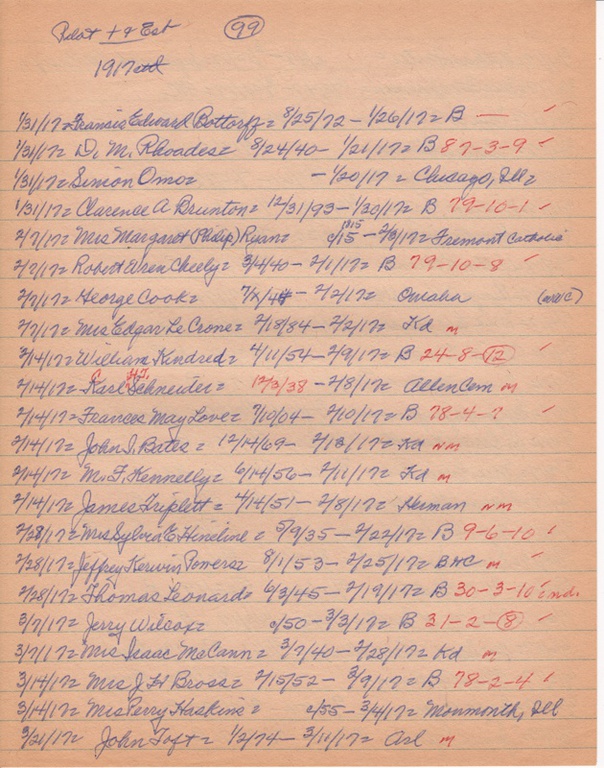 Pilot + & Est (99)
1917
1/31/17= Francis Edward Bottorff= 8/25/72 - 1/26/17= B — ✓
1/31/17= D. M. Rhoades= 8/24/40 - 1/21/17= B 87-3-9 ✓
1/31/17= Simon Omo= - 1/20/17= Chicago, Ill=
1/31/17= Clarence A Brunton= 12/31/93 - 1/30/17= B 79-10-1 ✓
2/7/17= Mrs Margaret (Philip) Ryan= c/15 1815 - 2/3/17= Fremont Catholic
2/7/17= Robert Wren Cheely= 3/4/40 - 2/1/17= B 79-10-8 ✓
2/7/17= George Cook= 7/x/44 - 2/2/17= Omaha
2/7/17= Mrs Edgar Le Crone= 2/18/84 - 2/2/17= Kd m
2/14/17= William Kindred= 4/11/54 - 2/9/17= B 24-8-(12) ✓
2/14/17= Karl C H.F. Schneider= 12/3/38 - 2/8/17= Allen Cem m
2/14/17= Frances May Love= 7/10/04 - 2/10/17= B 78-4-? ✓
2/14/17= John I. Bates= 12/14/69 - 2/12/17= Kd nm
2/14/17= M. F. Kennelly= 6/14/56 - 2/11/17= Kd m
2/14/17= James Triplett= 4/14/51 - 2/8/17= Herman nm
2/28/17= Mrs Sylvia E Hineline= 5/9/35 - 2/22/17= B 9-6-10 ✓
2/28/17= Jeffrey Kerwin Powers= 8/1/53 - 2/25/17= BHC m ✓
2/28/17= Thomas Leonard= 6/3/45 - 2/19/17= B 30-3-10 ✓ ind.
3/7/17= Jerry Wilcox= c/50 - 3/3/17= B 31-2-(8) ✓
3/7/17= Mrs Isaac McCann= 3/7/40 - 2/28/17= Kd m
3/14/17= Mrs J H Bross= 2/15/52 - 3/9/17= B 78-2-4 ✓
3/14/17= Mrs Perry Haskins= c/55 - 3/4/17= Monmonth, Ill
3/21/17= John Toft= 1/2/74 - 3/11/17= Arl m